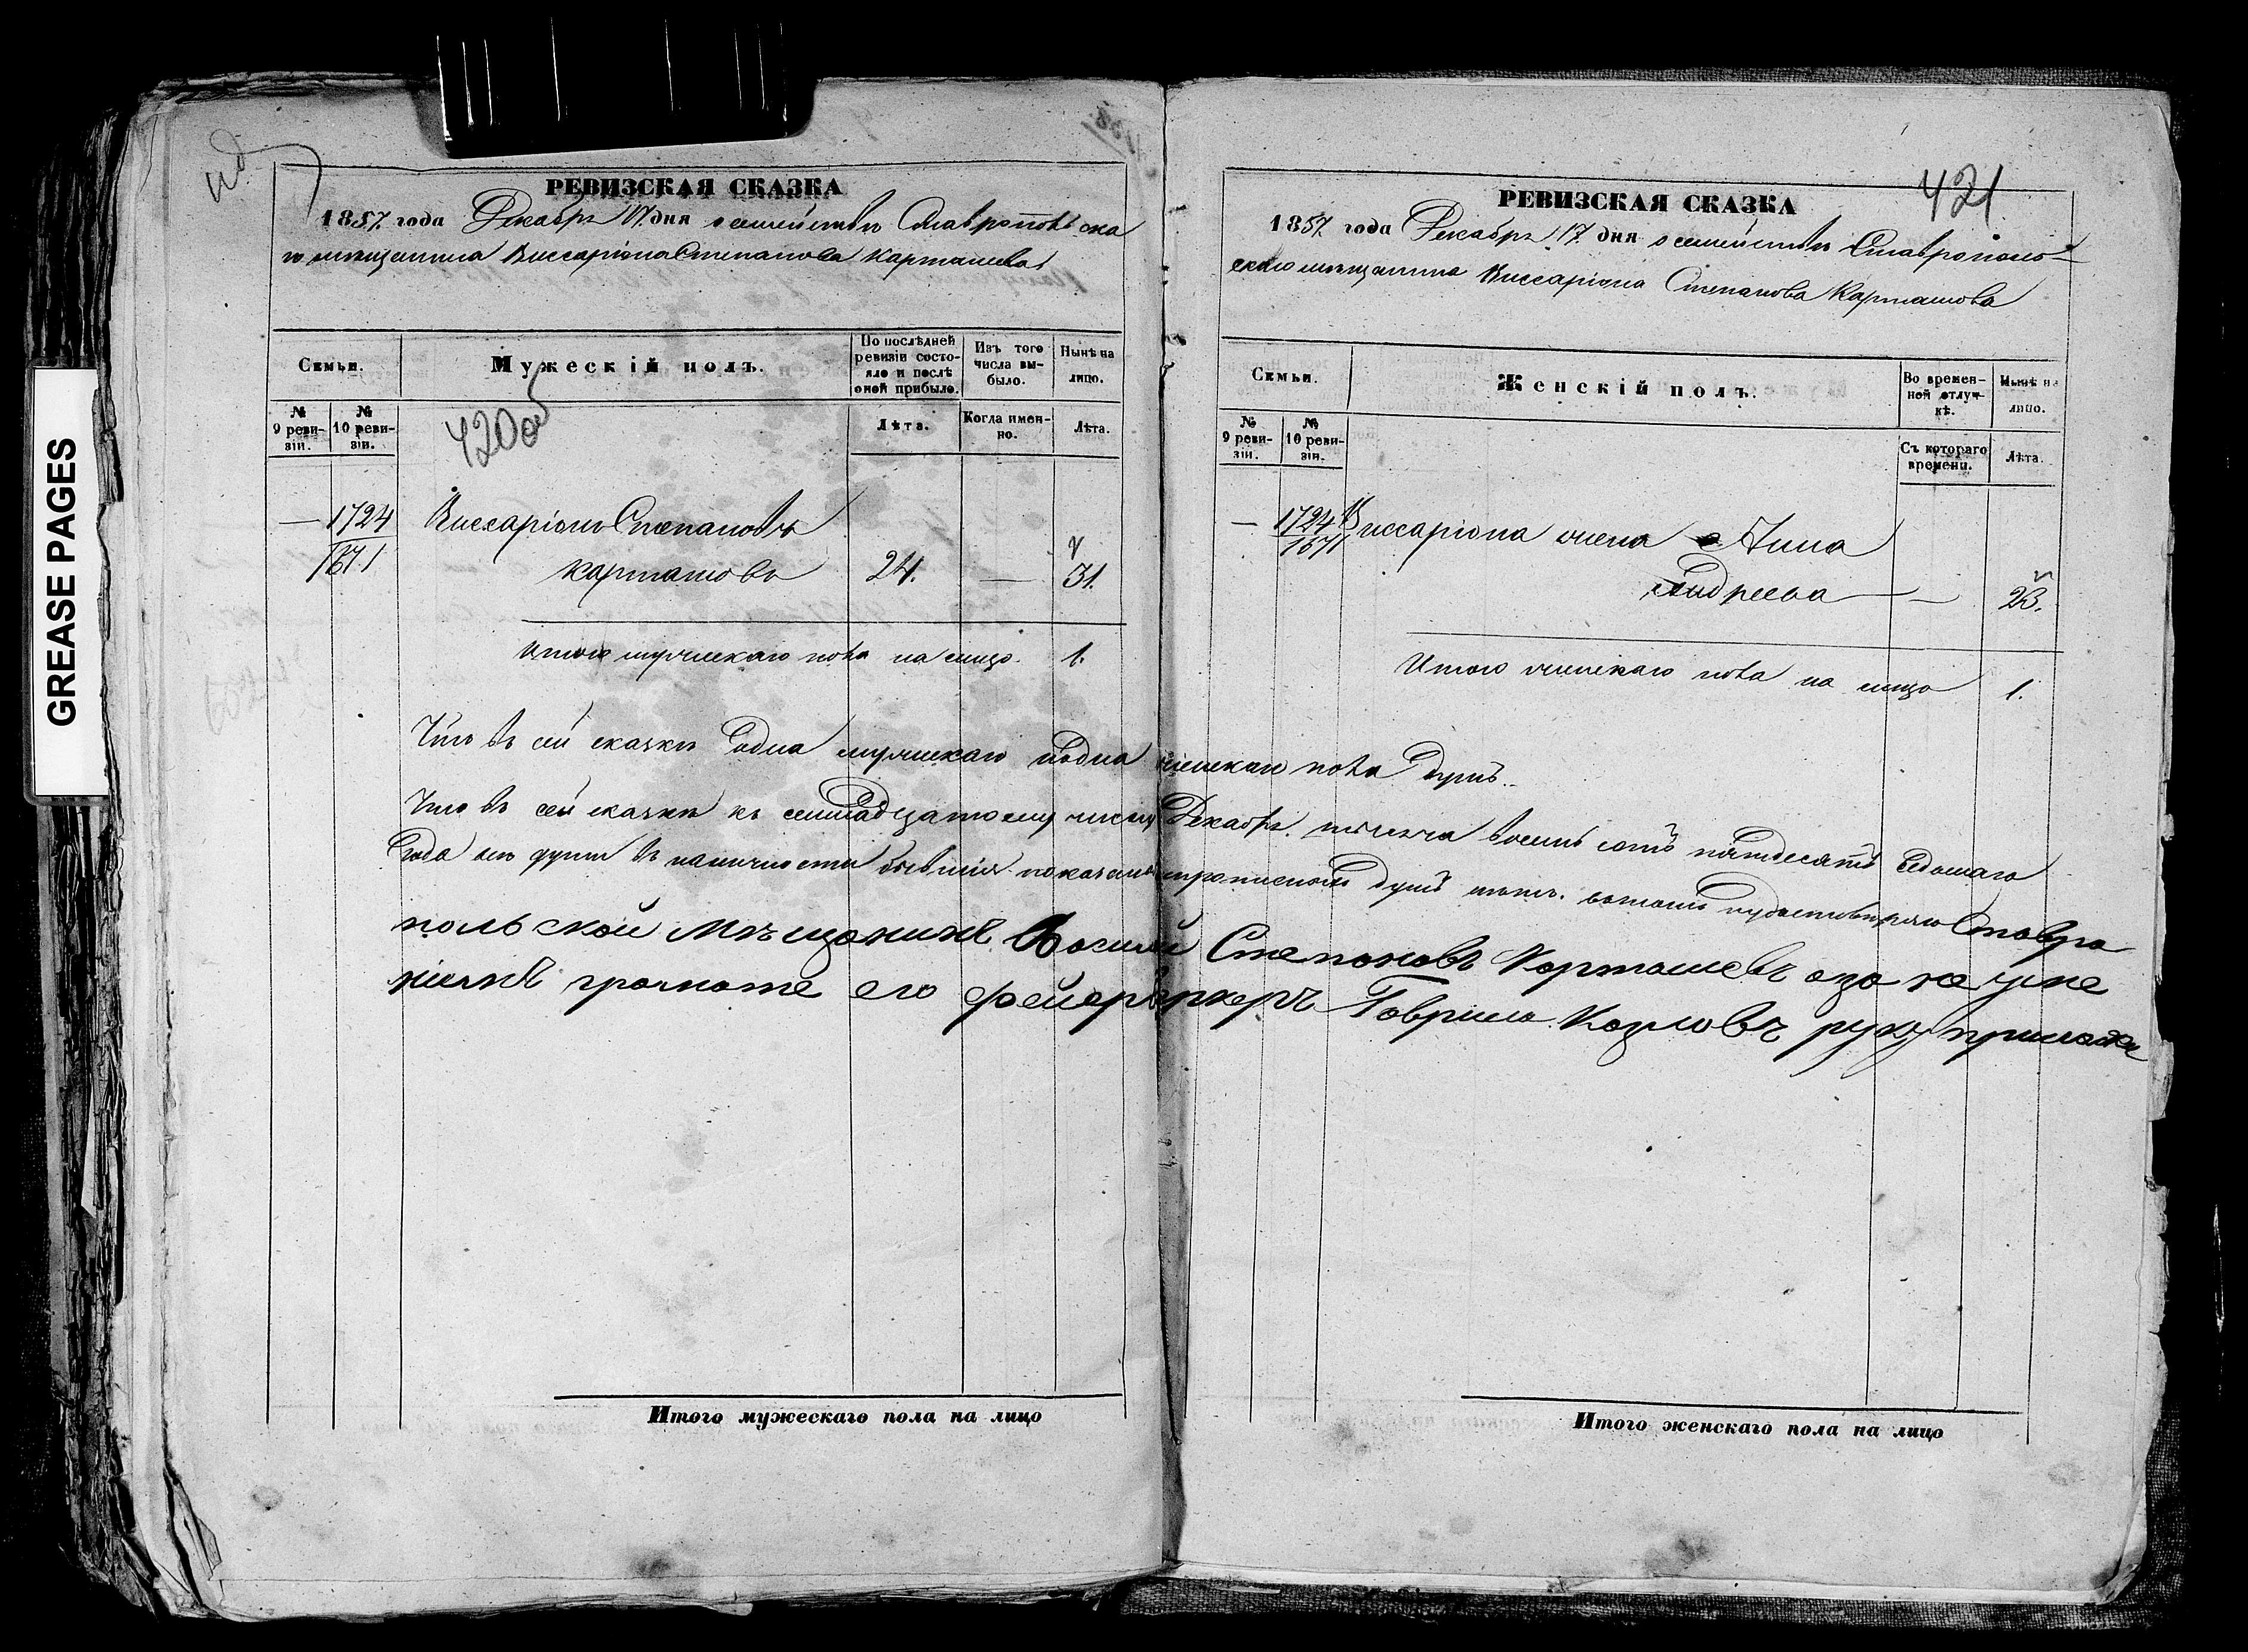 GREASE PAGES
РЕВИЗСКАЯ СКАЗКА
1857. года Декабря 17. дня о семействѣ Ставропольска
го мѣщанина Виссаріона Степанова Карташева
Семьи.
Мужескій полъ.
По послѣдней ревизіи состояло и послѣ оной прибыло.
Изъ того числа выбыло.
Нынѣ на лицо.
№ 9 ревизіи.
№ 10 ревизіи.
420 об
Лѣта.
Когда именно.
Лѣта.
— 1724 Виссаріонъ Степановъ
1671 Карташовъ 24. — 31.
Итого мужескаго пола на лицо. 1.
Итого мужескаго пола на лицо
421
РЕВИЗСКАЯ СКАЗКА
1857 года Декабря 17. дня о семействѣ Ставрополь-
скаго мѣщанина Виссаріона Степанова Карташова
Семьи.
Женскій полъ.
Во временной отлучкѣ.
Нынѣ на лицо.
№ 9 ревизіи.
№ 10 ревизіи.
Съ котораго времени.
Лѣта.
— 1724 Виссаріона жена Анна
1671 Андреева — 23.
Итого женскаго пола на лицо 1.
Что въ сей сказкѣ одна мужскаго и одна женскаго пола душъ.
Что въ сей сказкѣ къ семнадцатому числу Декабря тысяча восемь сотъ пятдесятъ седьмаго
года всѣ души въ наличности бывшія показаны прописныхъ душъ нѣтъ. въ томъ удостовѣряю Ставро
польской мѣщанинъ Василий Степановъ Карташевъ азо не уме
ніемъ грамоте его фейерверкеръ Гаврило Козловъ руку приложи
Итого женскаго пола на лицо